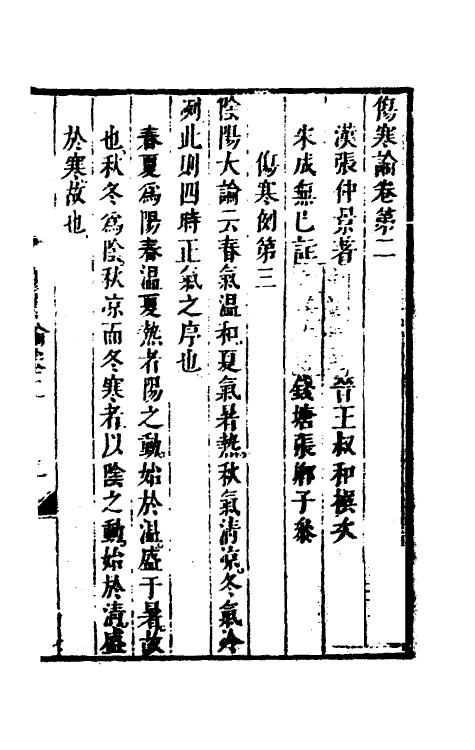 傷寒論卷第二
漢張仲景著 晉王叔和撰次
宋成無已註 錢塘張卿子參
傷寒例第三
陰陽大論云春氣溫和夏氣暑熱秋氣清涼冬氣冷
冽此則四時正氣之序也
春夏為陽春溫夏熱者陽之動始於溫盛于暑故
也秋冬為陰秋凉而冬寒者以陰之動始於清盛
於寒故也